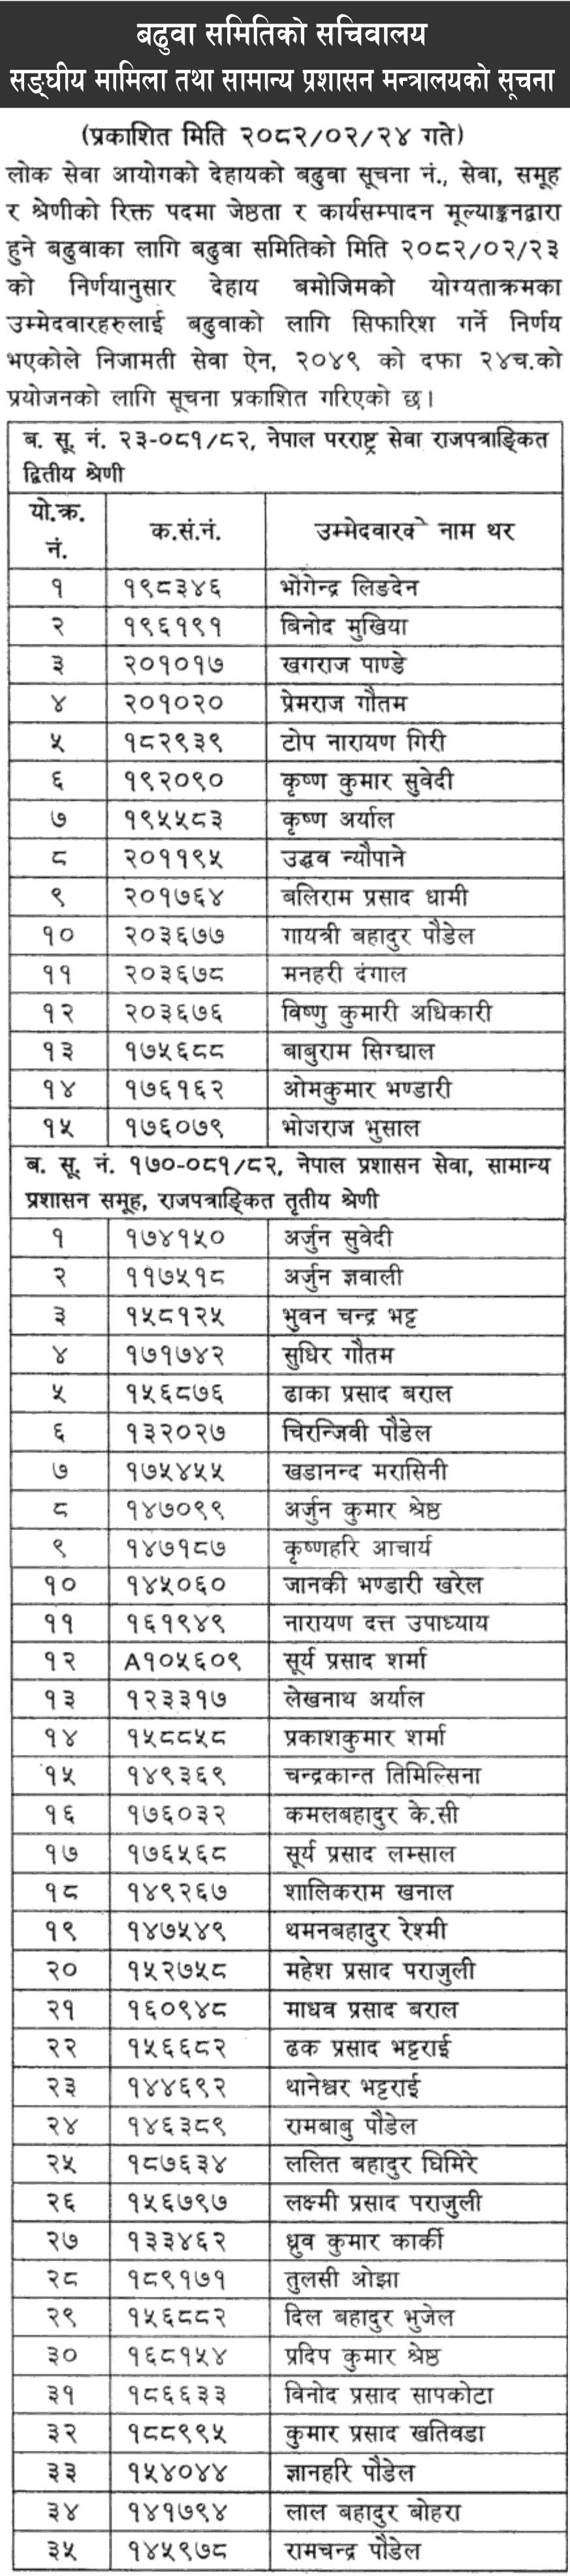 बढुवा समितिको सचिवालय
सङ्घीय मामिला तथा सामान्य प्रशासन मन्त्रालयको सूचना
(प्रकाशित मिति २०८२/०२/२४ गते)
लोक सेवा आयोगको देहायको बढुवा सूचना नं., सेवा, समूह
र श्रेणीको रिक्त पदमा जेष्ठता र कार्यसम्पादन मूल्याङ्कनद्वारा
हुने बढुवाका लागि बढुवा समितिको मिति २०८२/०२/२३
को निर्णयानुसार देहाय बमोजिमको योग्यताक्रमका
उम्मेदवारहरुलाई बढुवाको लागि सिफारिश गर्ने निर्णय
भएकोले निजामती सेवा ऐन, २०४९ को दफा २४च.को
प्रयोजनको लागि सूचना प्रकाशित गरिएको छ।
ब. सू. नं. २३-०८१/८२, नेपाल परराष्ट्र सेवा राजपत्राङ्कित
द्वितीय श्रेणी
यो.क्र. नं. क.सं.नं. उम्मेदवारको नाम थर
१ १९८३४६ भोगेन्द्र लिङदेन
२ १९६१९१ बिनोद मुखिया
३ २०१०१७ खगराज पाण्डे
४ २०१०२० प्रेमराज गौतम
५ १८२९३९ टोप नारायण गिरी
६ १९२०९० कृष्ण कुमार सुवेदी
७ १९५५८३ कृष्ण अर्याल
८ २०११९५ उद्धव न्यौपाने
९ २०१७६४ बलिराम प्रसाद धामी
१० २०३६७७ गायत्री बहादुर पौडेल
११ २०३६७८ मनहरी दंगाल
१२ २०३६७६ विष्णु कुमारी अधिकारी
१३ १७५६८८ बाबुराम सिग्द्याल
१४ १७६१६२ ओमकुमार भण्डारी
१५ १७६०७९ भोजराज भुसाल
ब. सू. नं. १७०-०८१/८२, नेपाल प्रशासन सेवा, सामान्य
प्रशासन समूह, राजपत्राङ्कित तृतीय श्रेणी
१ १७४१५० अर्जुन सुवेदी
२ ११७५१८ अर्जुन ज्ञवाली
३ १५८१२५ भुवन चन्द्र भट्ट
४ १७१७४२ सुधिर गौतम
५ १५६८७६ ढाका प्रसाद बराल
६ १३२०२७ चिरन्जिवी पौडेल
७ १७५४५५ खडानन्द मरासिनी
८ १४७०९९ अर्जुन कुमार श्रेष्ठ
९ १४७१८७ कृष्णहरि आचार्य
१० १४५०६० जानकी भण्डारी खरेल
११ १६१९४९ नारायण दत्त उपाध्याय
१२ A१०५६०९ सूर्य प्रसाद शर्मा
१३ १२३३१७ लेखनाथ अर्याल
१४ १५८८५८ प्रकाशकुमार शर्मा
१५ १४९३६९ चन्द्रकान्त तिमिल्सिना
१६ १७६०३२ कमलबहादुर के.सी
१७ १७६५६८ सूर्य प्रसाद लम्साल
१८ १४९२६७ शालिकराम खनाल
१९ १४७५४९ थमनबहादुर रेश्मी
२० १५२७५८ महेश प्रसाद पराजुली
२१ १६०९४८ माधव प्रसाद बराल
२२ १५६६८२ ढक प्रसाद भट्टराई
२३ १४४६९२ थानेश्वर भट्टराई
२४ १४६३८९ रामबाबु पौडेल
२५ १८७६३४ ललित बहादुर घिमिरे
२६ १५६७९७ लक्ष्मी प्रसाद पराजुली
२७ १३३४६२ ध्रुव कुमार कार्की
२८ १८९१७१ तुलसी ओझा
२९ १५६८८२ दिल बहादुर भुजेल
३० १६८१५४ प्रदिप कुमार श्रेष्ठ
३१ १८६६३३ विनोद प्रसाद सापकोटा
३२ १८८९९५ कुमार प्रसाद खतिवडा
३३ १५४०४४ ज्ञानहरि पौडेल
३४ १४१७९४ लाल बहादुर बोहरा
३५ १४५९७८ रामचन्द्र पौडेल